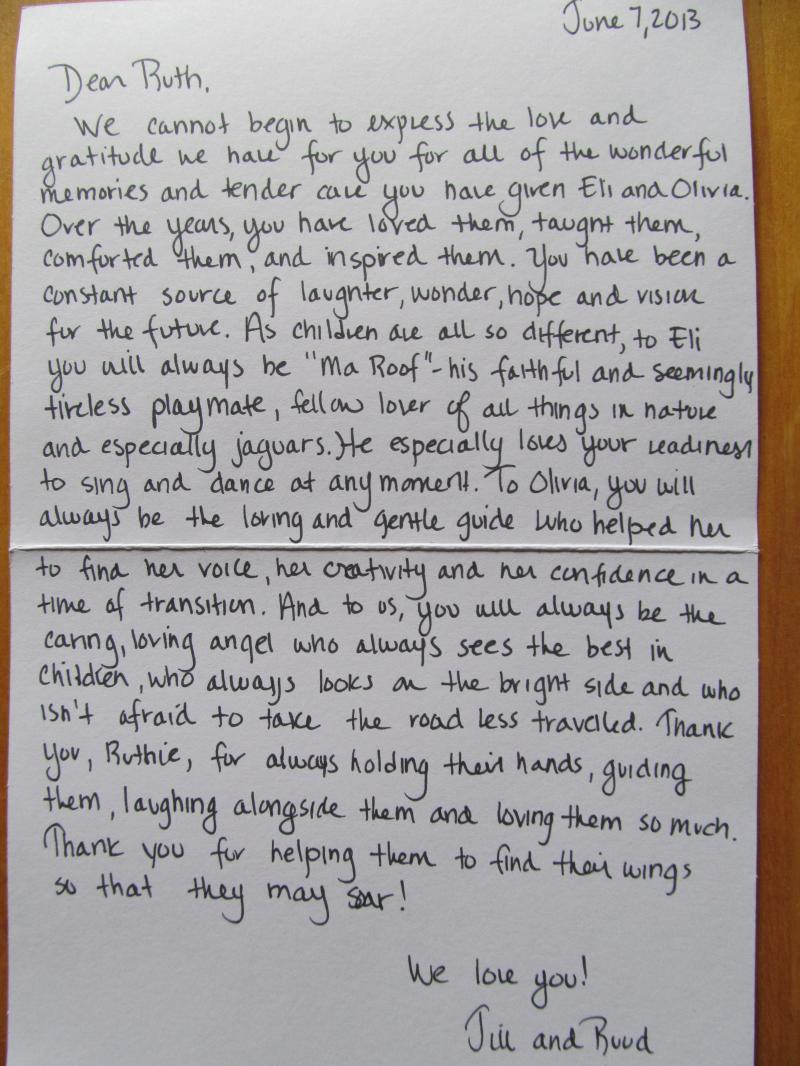 June 7, 2013
Dear Ruth,
We cannot begin to express the love and
gratitude we have for you for all of the wonderful
memories and tender care you have given Eli and Olivia.
Over the years, you have loved them, taught them,
comforted them, and inspired them. You have been a
constant source of laughter, wonder, hope and vision
for the future. As children are all so different, to Eli
you will always be "Ma Roof" - his faithful and seemingly
tireless playmate, fellow lover of all things in nature
and especially jaguars. He especially loves your readiness
to sing and dance at any moment. To Olivia, you will
always be the loving and gentle guide who helped her
to find her voice, her creativity and her confidence in a
time of transition. And to us, you will always be the
caring, loving angel who always sees the best in
children, who always looks on the bright side and who
isn't afraid to take the road less travelled. Thank
you, Ruthie, for always holding their hands, guiding
them, laughing alongside them and loving them so much.
Thank you for helping them to find their wings
so that they may soar!
We love you!
Jill and Ruud